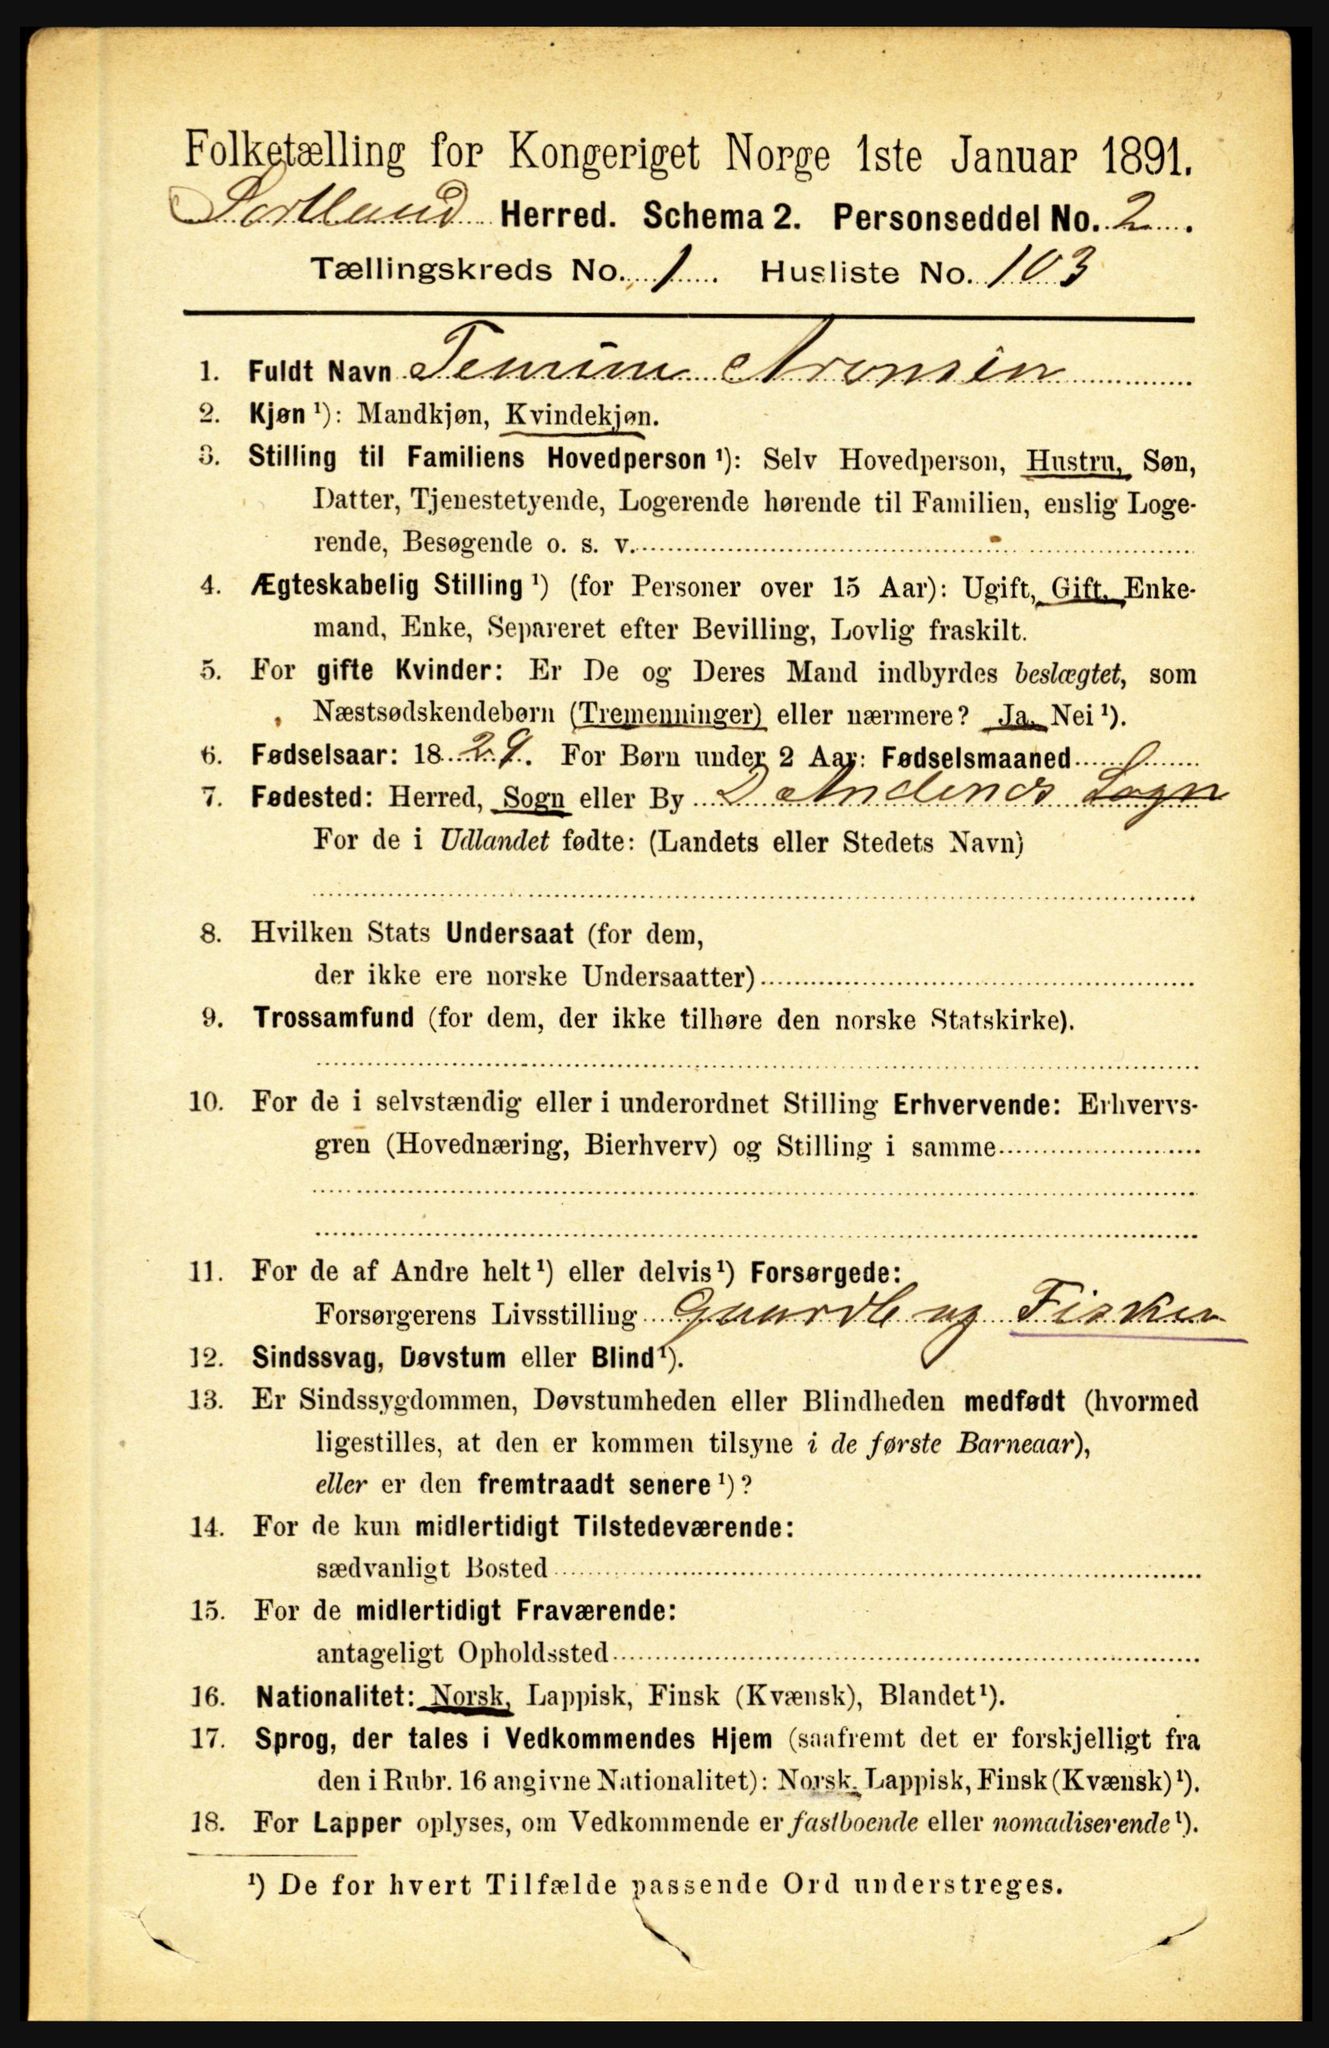 Folketælling for Kongeriget Norge 1ste Januar 1891.
Sortland Herred. Schema 2. Personseddel No. 2.
Tællingskreds No. 1. Husliste No. 103
1. Fuldt Navn Aronsen
2. Kjøn ¹): Mandkjøn, Kvindekjøn.
3. Stilling til Familiens Hovedperson ¹): Selv Hovedperson, Hustru, Søn,
Datter, Tjenestetyende, Logerende hørende til Familien, enslig Loge-
rende, Besøgende o. s. v.
4. Ægteskabelig Stilling ¹) (for Personer over 15 Aar): Ugift, Gift, Enke-
mand, Enke, Separeret efter Bevilling, Lovlig fraskilt.
5. For gifte Kvinder: Er De og Deres Mand indbyrdes beslægtet, som
Næstsødskendebørn (Tremenninger) eller nærmere? Ja, Nei ¹).
6. Fødselsaar: 1829. For Børn under 2 Aar: Fødselsmaaned
7. Fødested: Herred, Sogn eller By Andenes Sogn
For de i Udlandet fødte: (Landets eller Stedets Navn)
8. Hvilken Stats Undersaat (for dem,
der ikke ere norske Undersaatter)
9. Trossamfund (for dem, der ikke tilhøre den norske Statskirke).
10. For de i selvstændig eller i underordnet Stilling Erhvervende: Erhvervs-
gren (Hovednæring, Bierhverv) og Stilling i samme
11. For de af Andre helt ¹) eller delvis ¹) Forsørgede:
Forsørgerens Livsstilling Gaardb og Fisker
12. Sindssvag, Døvstum eller Blind ¹).
13. Er Sindssygdommen, Døvstumheden eller Blindheden medfødt (hvormed
ligestilles, at den er kommen tilsyne i de første Barneaar),
eller er den fremtraadt senere ¹)?
14. For de kun midlertidigt Tilstedeværende:
sædvanligt Bosted
15. For de midlertidigt Fraværende:
antageligt Opholdssted
16. Nationalitet: Norsk, Lappisk, Finsk (Kvænsk), Blandet ¹).
17. Sprog, der tales i Vedkommendes Hjem (saafremt det er forskjelligt fra
den i Rubr. 16 angivne Nationalitet): Norsk, Lappisk, Finsk (Kvænsk) ¹).
18. For Lapper oplyses, om Vedkommende er fastboende eller nomadiserende ¹).
¹) De for hvert Tilfælde passende Ord understreges.